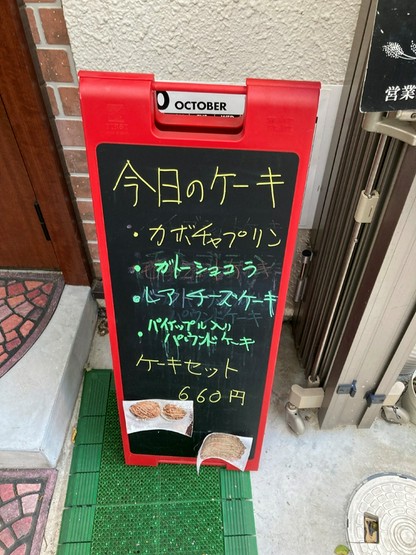 OCTOBER
営業
今日のケーキ
・カボチャプリン
・ガトーショコラ
・レーアチーズケーキ
・パイナップル入り
パウンドケーキ
ケーキセット
660円